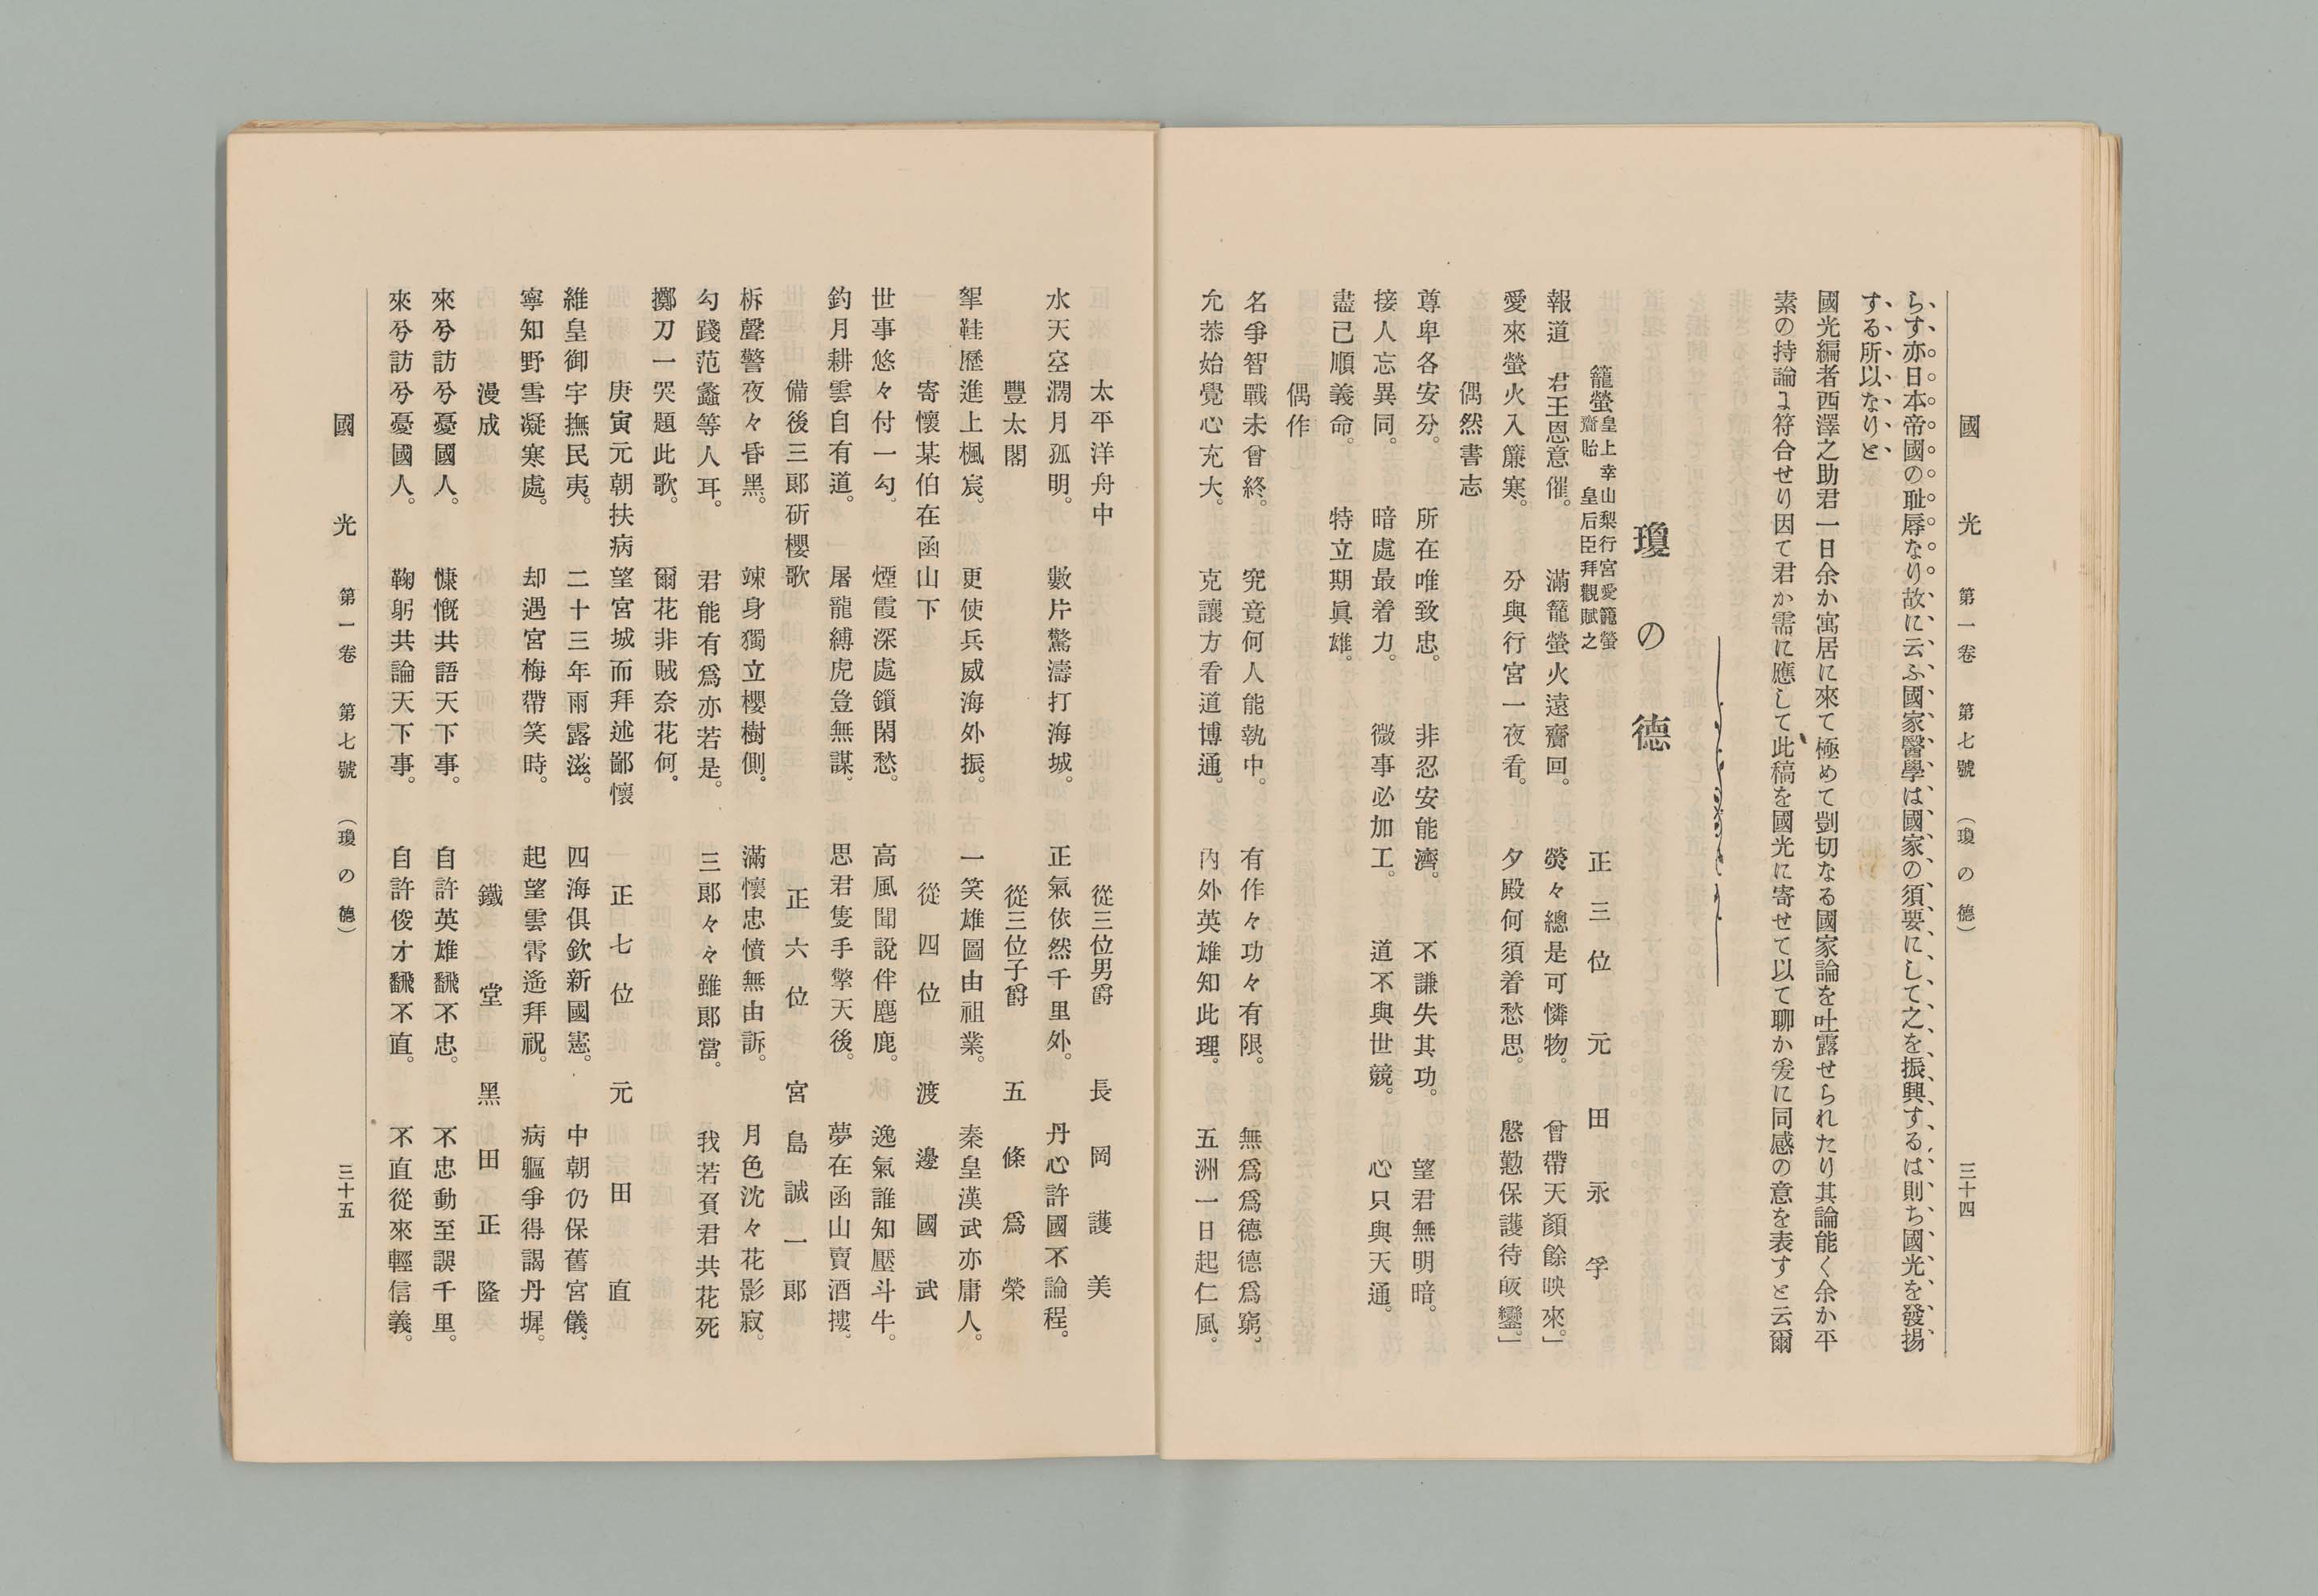 國光 第一卷 第七號 (瓊の德) 三十四
らす亦日本帝國の耻辱なり故に云ふ國家醫學は國家の須要にして之を振興するは則ち國光を發揚
する所以なりと
國光編者西澤之助君一日余か寓居に來て極めて剴切なる國家論を吐露せられたり其論能く余か平
素の持論よ符合せり因て君か需に應して此稿を國光に寄せて以て聊か爰に同感の意を表すと云爾
瓊の德
籠螢 皇上幸山梨行宮愛籠螢齎貽 皇后臣拜觀賦之 正三位 元田永孚
報道 君王恩意催。 滿籠螢火遠齎回。 熒々總是可憐物。 曾帶天顏餘映來。」
愛來螢火入簾寒。 分與行宮一夜看。 夕殿何須着愁思。 慇懃保護待皈鑾。」
偶然書志
尊卑各安分。 所在唯致忠。 非忍安能濟。 不謙失其功。 望君無明暗。
接人忘異同。 暗處最着力。 微事必加工。 道不與世競。 心只與天通。
盡已順義命。 特立期眞雄。
偶作
名爭智戰未曾終。 究竟何人能執中。 有作々功々有限。 無爲爲德德爲窮。
允恭始覺心充大。 克讓方看道博通。 內外英雄知此理。 五洲一日起仁風。
太平洋舟中 從三位男爵 長岡護美
水天空濶月孤明。 數片驚濤打海城。 正氣依然千里外。 丹心許國不論程。
豐太閤 從三位子爵 五條爲榮
犂鞋歷進上楓宸。 更使兵威海外振。 一笑雄圖由祖業。 秦皇漢武亦庸人。
寄懷某伯在函山下 從四位 渡邊國武
世事悠々付一勾。 煙霞深處鎖閑愁。 高風聞說伴麀鹿。 逸氣誰知壓斗牛。
釣月耕雲自有道。 屠龍縛虎豈無謀。 思君隻手擎天後。 夢在函山賣酒摟。
備後三郞斫櫻歌 正六位 宮島誠一郞
柝聲警夜々昏黑。 竦身獨立櫻樹側。 滿懷忠憤無由訴。 月色沈々花影寂。
勾踐范蠡等人耳。 君能有爲亦若是。 三郞々々雖郞當。 我若負君共花死
擲刀一哭題此歌。 爾花非賊奈花何。
庚寅元朝扶病望宮城而拜述鄙懷 正七位 元田直
維皇御宇撫民夷。 二十三年雨露滋。 四海俱欽新國憲。 中朝仍保舊宮儀。
寧知野雪凝寒處。 却遇宮梅帶笑時。 起望雲霄遙拜祝。 病軀爭得謁丹墀。
漫成 鐵堂 黑田正隆
來兮訪兮憂國人。 慷慨共語天下事。 自許英雄飜不忠。 不忠動至誤千里。
來兮訪兮憂國人。 鞠躬共論天下事。 自許俊才飜不直。 不直從來輕信義。
國光 第一卷 第七號 (瓊の德) 三十五